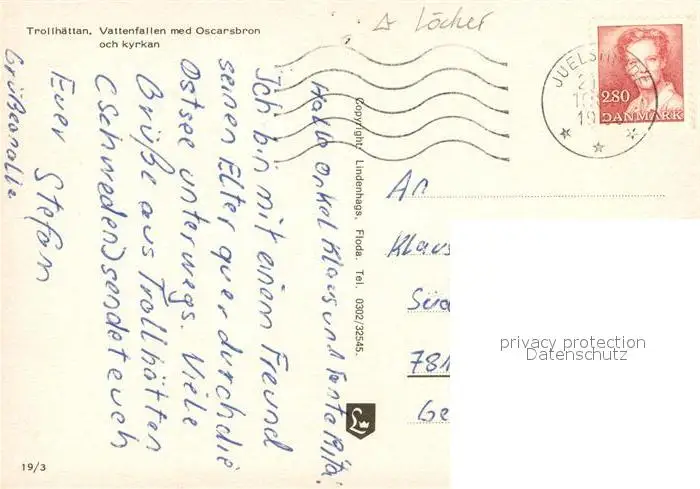 Trollhättan. Vattenfallen med Oscarsbron
och kyrkan
Löcher
JUELSMINDE
2.80
DANMARK
Hallo onkel Klaus und Tante Rita!
Ich bin mit einem Freund
seinen Elter quer durch die
Ostsee unterwegs. Viele
Grüße aus Trollhätten
(Schweden) sendet euch
Euer Stefan
Grüße an alle
Copyright: Lindenhags, Floda. Tel. 0302/32545.
An
Klaus
781
19/3
privacy protection
Datenschutz